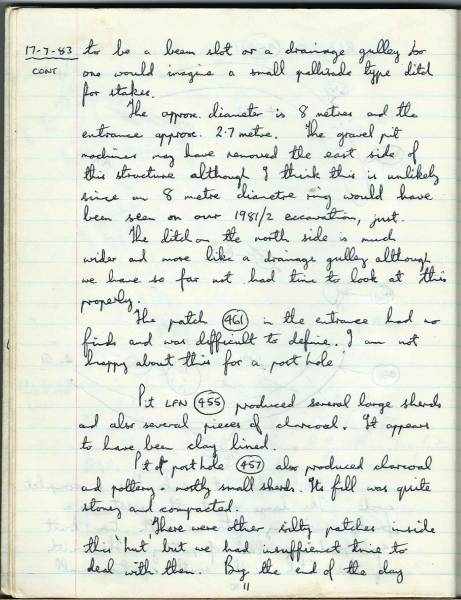 17-7-83 to be a beam slot or a drainage gulley too
CONT one would imagine a small pallisade type ditch
for stakes.
The approx. diameter is 8 metres and the
entrance approx. 2.7 metre. The gravel pit
machines may have removed the east side of
this structure although I think this is unlikely
since an 8 metre diametre ring would have
been seen on our 1981/2 excavation, just.
The ditch on the north side is much
wider and more like a drainage gulley although
we have so far not had time to look at this
properly.
The patch 461 in the entrance had no
finds and was difficult to define. I am not
happy about this for a post hole
Pit LFN 455 produced several large sherds
and also several pieces of charcoal. It appears
to have been clay lined.
Pit or post hole 457 also produced charcoal
and pottery - mostly small sherds. Its fill was quite
stoney and compacted.
There were other silty patches inside
this 'hut' but we had insufficient time to
deal with them. By the end of the day
11